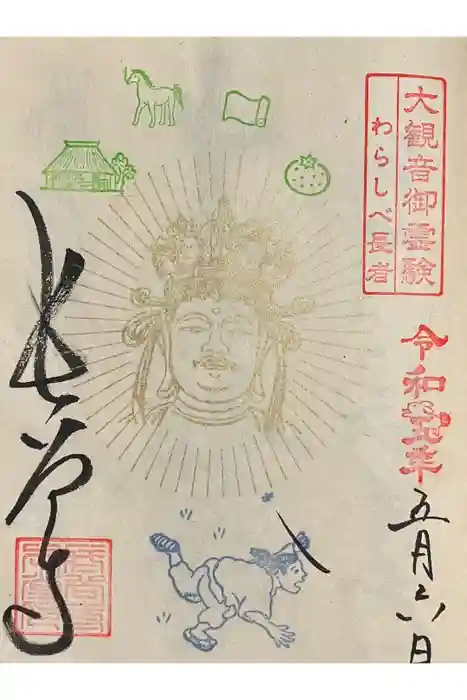 大観音御霊験
わらしべ長者
令和五年
五月六日
長谷寺